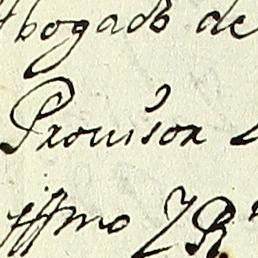 Abogado de
Provisor
Yllmo Y R